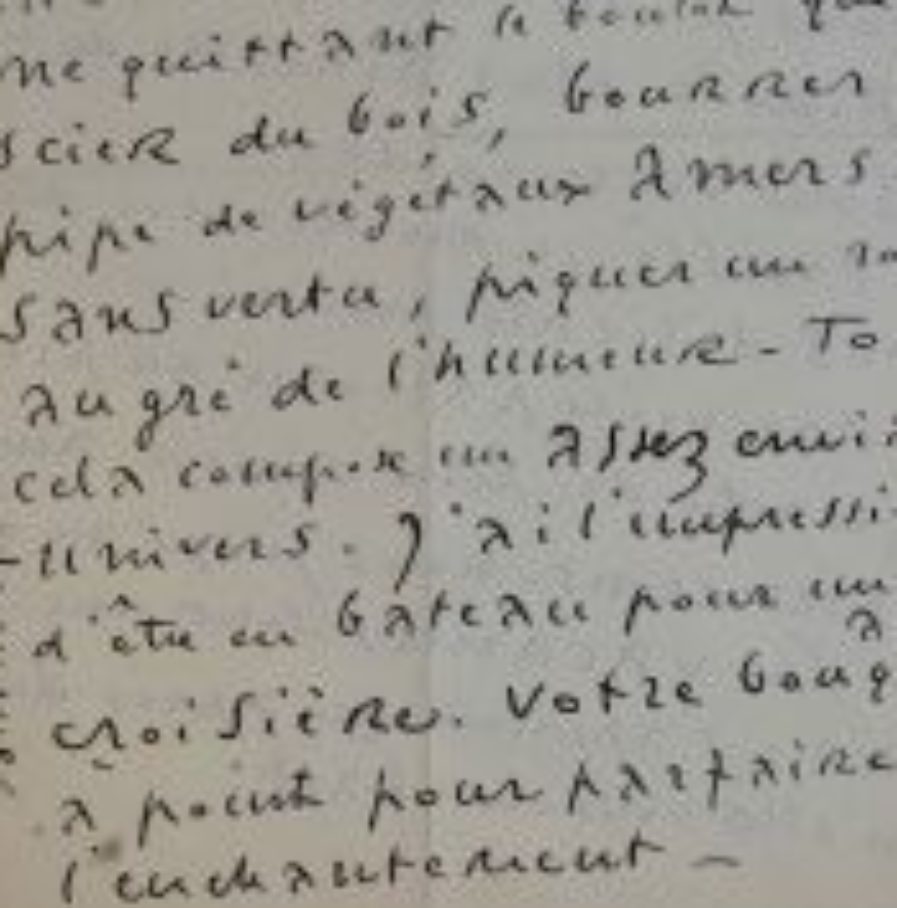 ne quittant le
scier du bois, bourrer
pipe de végétaux amers
sans vertu, piquer un
au gré de l'humeur - To
cela compose un assez envi
-univers. J'ai l'impressi
d'être en bateau pour un
croisière. Votre boug
à
à point pour parfaire
l'enchantement -